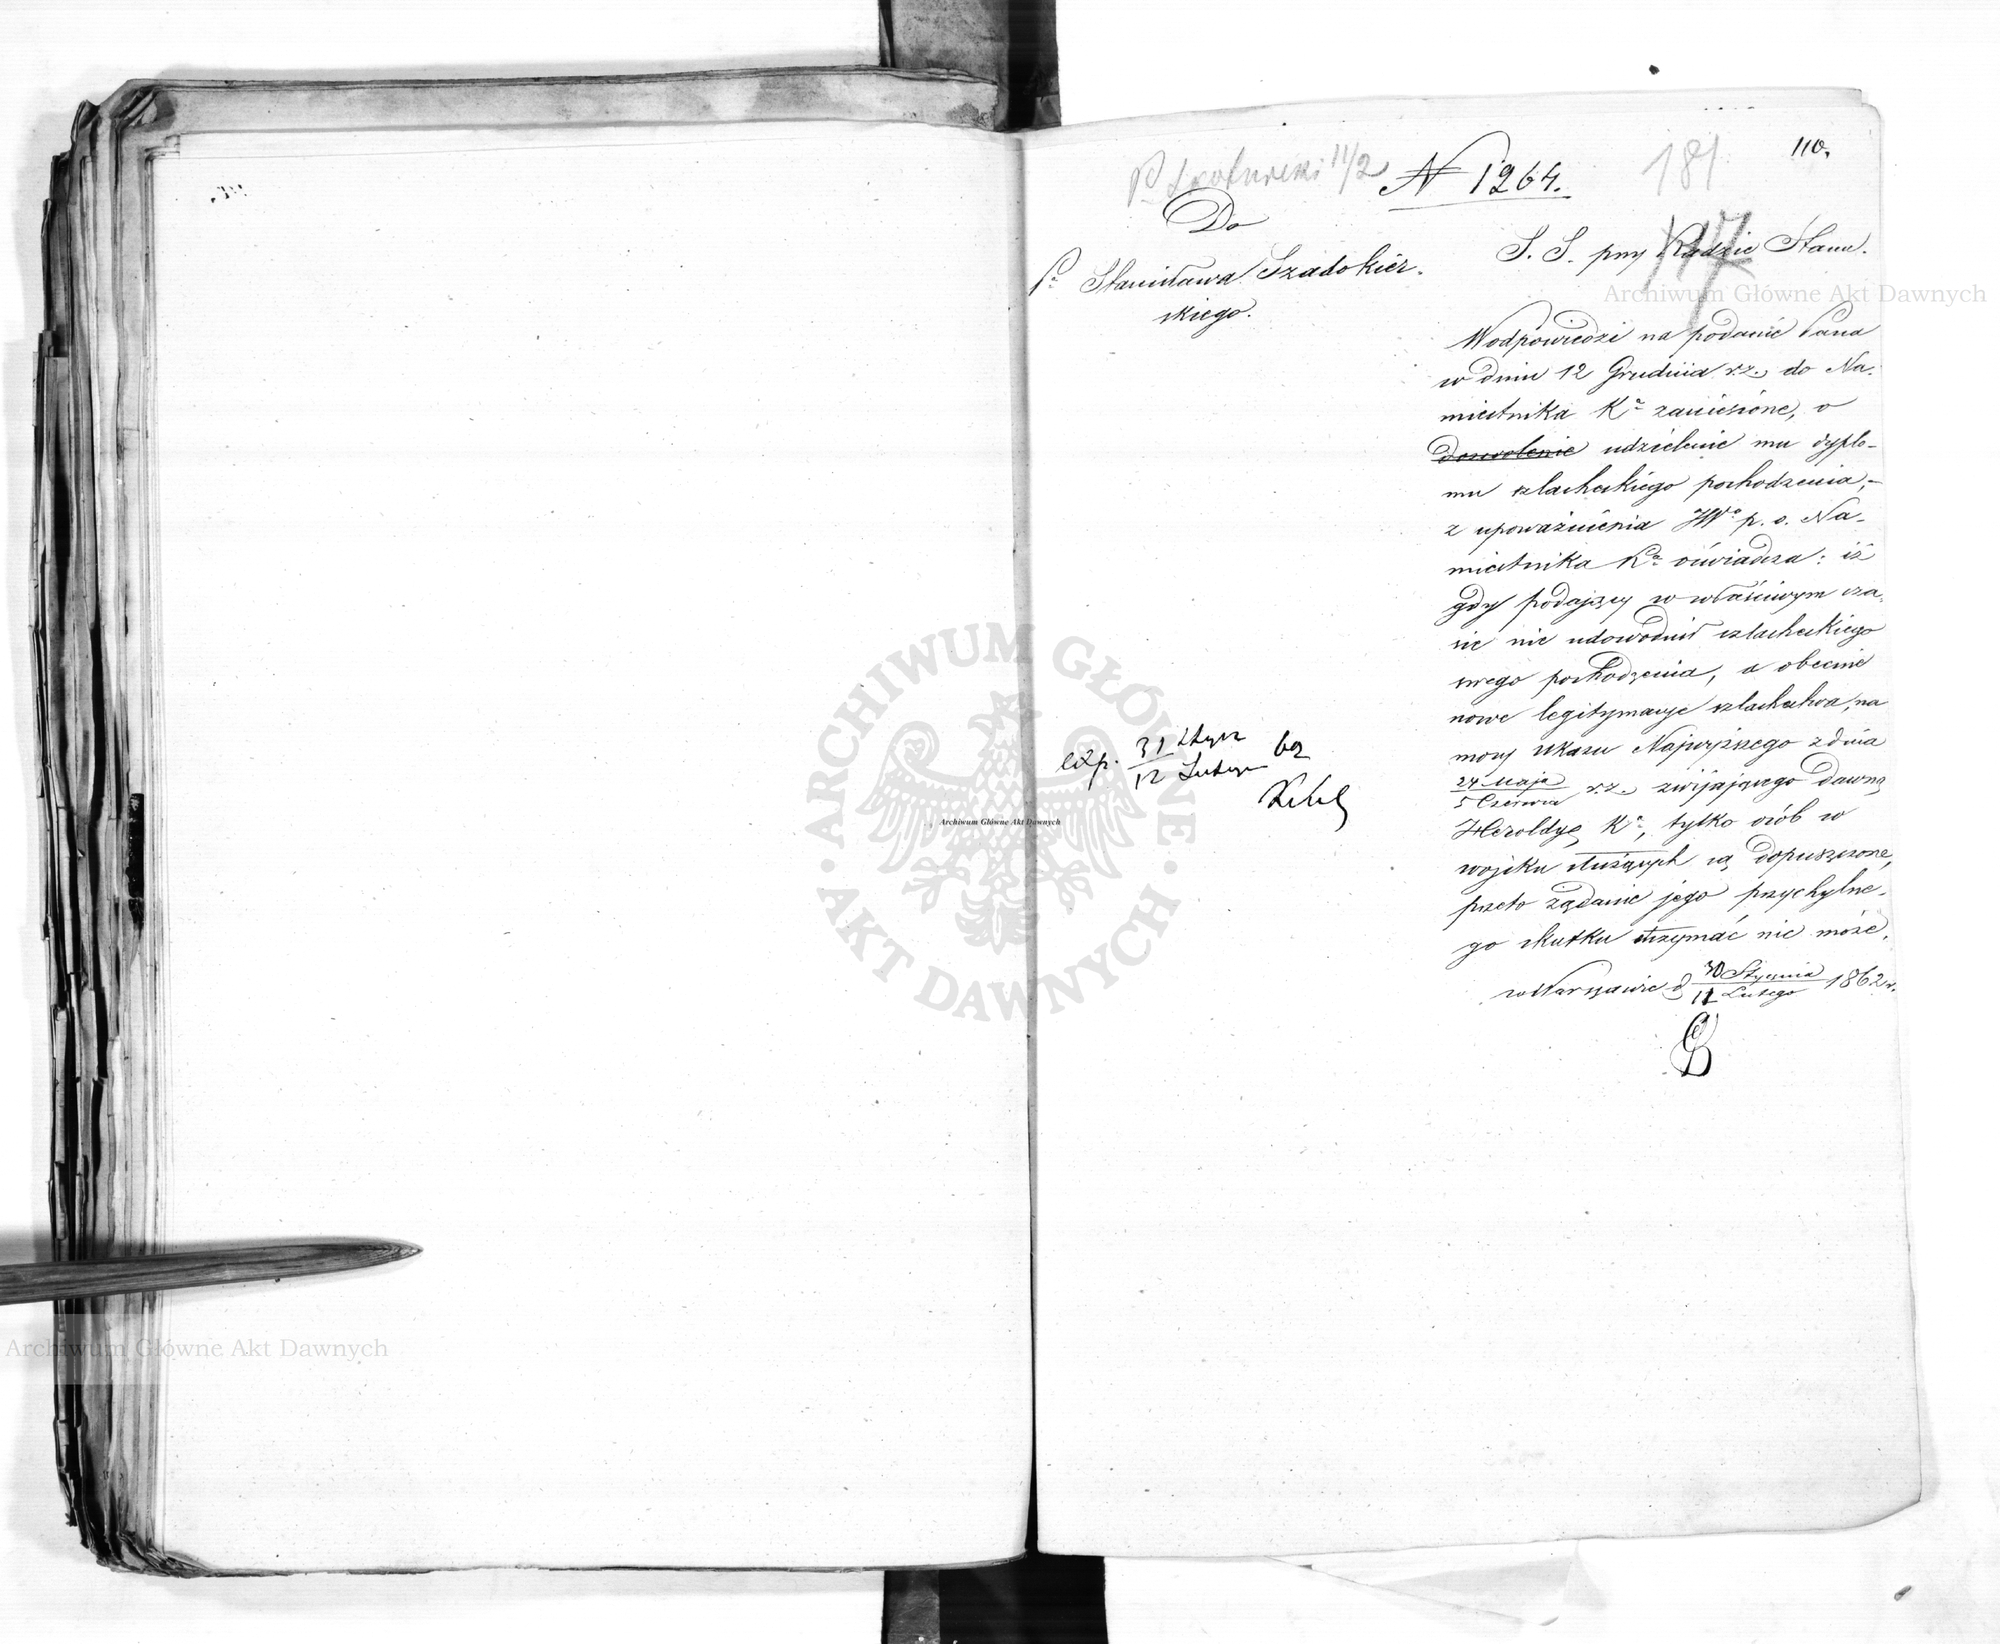 110.
181
11/2
N 1264.
Do
P. Stanisława Szadokier-
skiego.
S. S. przy Radzie Stanu.
W odpowiedzi na podanie Pana
w dniu 12 Grudnia r.z. do Na-
miestnika Kr. zaniesione, o
dozwolenie udzielenie mu dyplo-
mu szlacheckiego pochodzenia,-
z upoważnienia JWo p. o. Na-
miestnika Kr. oświadcza: iż
gdy podający w właściwym cza-
sie nie udowodnił szlacheckiego
swego pochodzenia, a obecnie
nowe legitymacye szlachectwa, na
mocy Ukazu Najwyższego z dnia
24 Maja
5 Czerwca r.z. zwijającego dawną
Heroldyę Kr., tylko osób w
wojsku służących są dopuszczone,
przeto żądanie jego przychylne-
go skutku otrzymać nie może.
w Warszawie d. 30 Stycznia
11 Lutego 1862 r.
exp. 31 Stycz
12 Lutego 62
Archiwum Główne Akt Dawnych
Archiwum Główne Akt Dawnych
Archiwum Główne Akt Dawnych
ARCHIWUM GŁÓWNE
AKT DAWNYCH